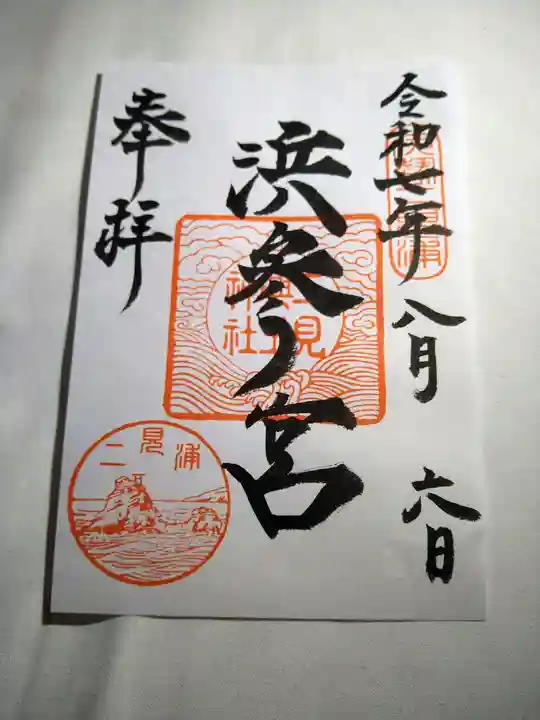 令和七年八月六日
浜参ノ宮
奉拝
二見興玉神社
二見浦